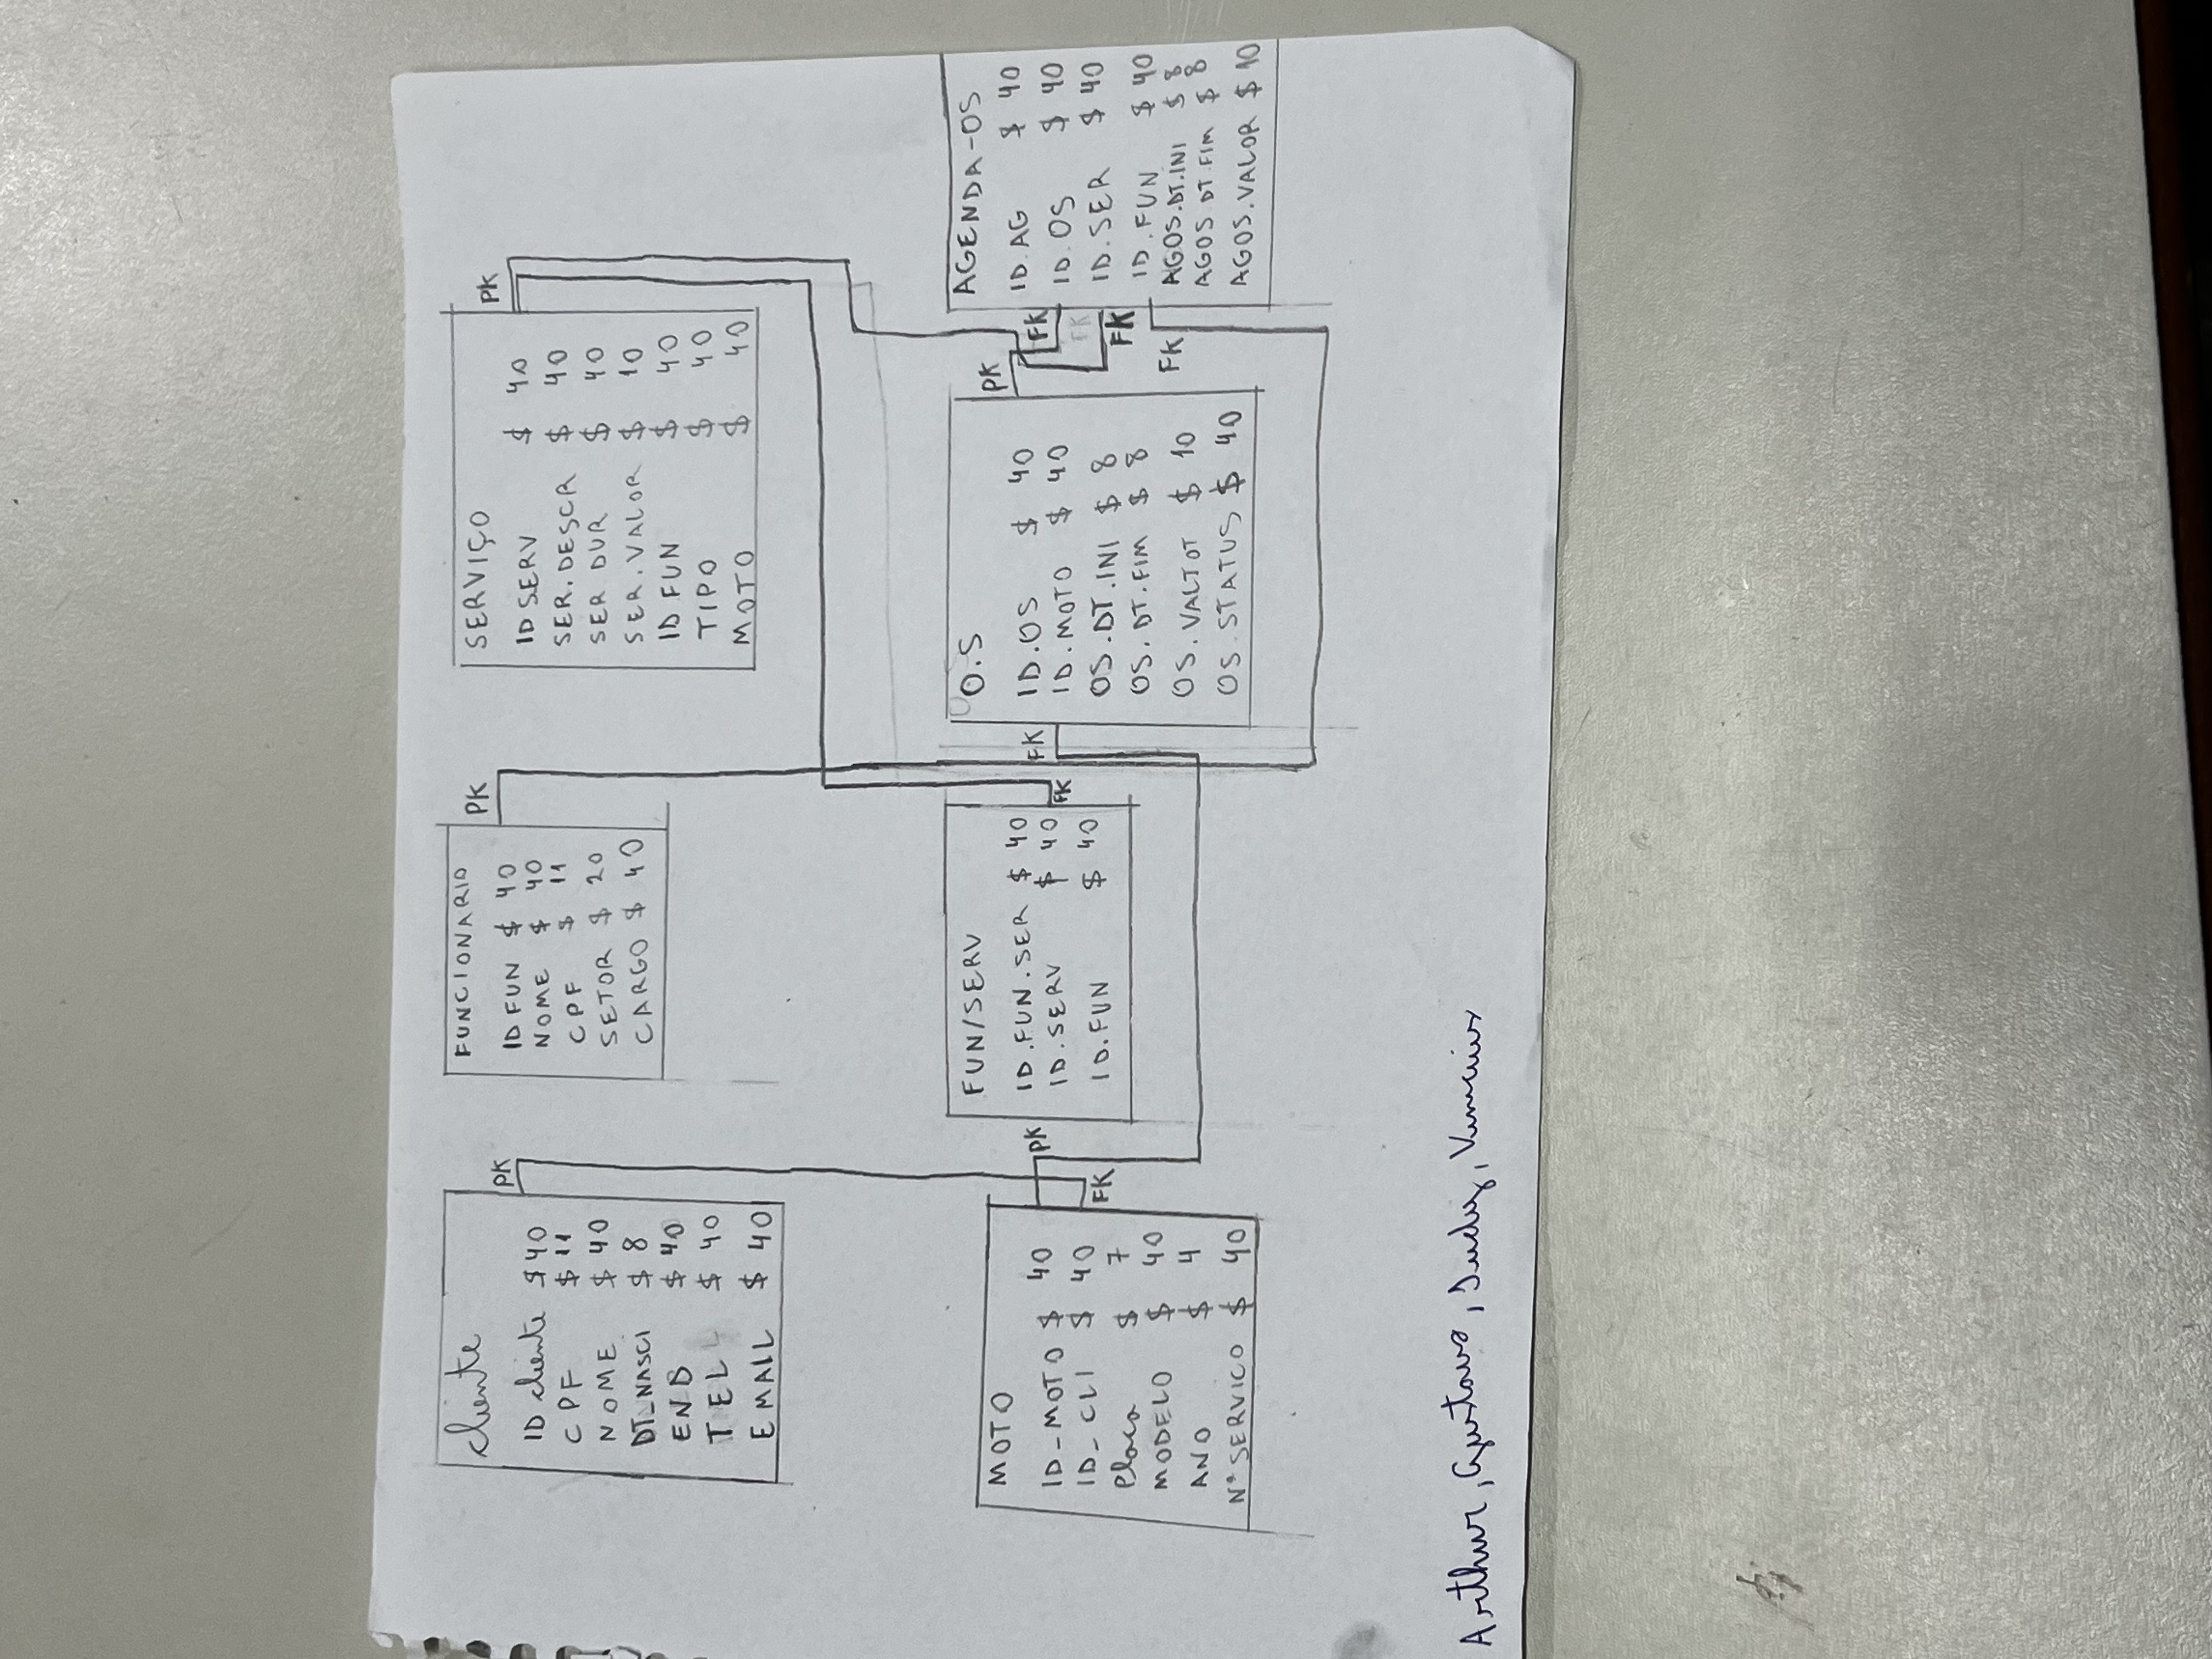 Cliente
ID cliente $ 40
CPF $ 11
NOME $ 40
DT_NASCI $ 8
END $ 40
TEL $ 40
EMAIL $ 40
PK
FUNCIONARIO
ID FUN $ 40
NOME $ 40
CPF $ 11
SETOR $ 20
CARGO $ 40
PK
SERVIÇO
ID SERV $ 40
SER.DESCR $ 40
SER DUR $ 40
SER.VALOR $ 10
ID FUN $ 40
TIPO $ 40
MOTO $ 40
PK
MOTO
ID_MOTO $ 40
ID_CLI $ 40
Placa $ 7
MODELO $ 40
ANO $ 4
Nº SERVICO $ 40
PK
FK
FUN/SERV
ID.FUN.SER $ 40
ID.SERV $ 40
ID.FUN $ 40
FK
FK
O.S
ID.OS $ 40
ID.MOTO $ 40
OS.DT.INI $ 8
OS.DT.FIM $ 8
OS.VALTOT $ 10
OS.STATUS $ 40
PK
FK
FK
FK
FK
AGENDA-OS
ID.AG $ 40
ID.OS $ 40
ID.SER $ 40
ID.FUN $ 40
AGOS.DT.INI $ 8
AGOS.DT.FIM $ 8
AGOS.VALOR $ 10
Arthur, Gustavo, Judy, Vinicius